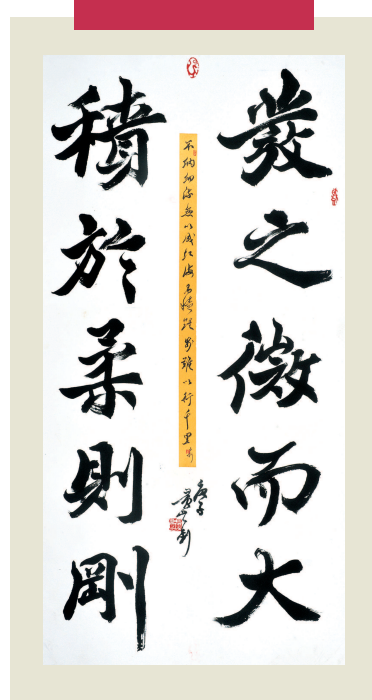 發之微而大
不納細流無以成江海不積跬步難以行千里
庚子
積於柔則剛